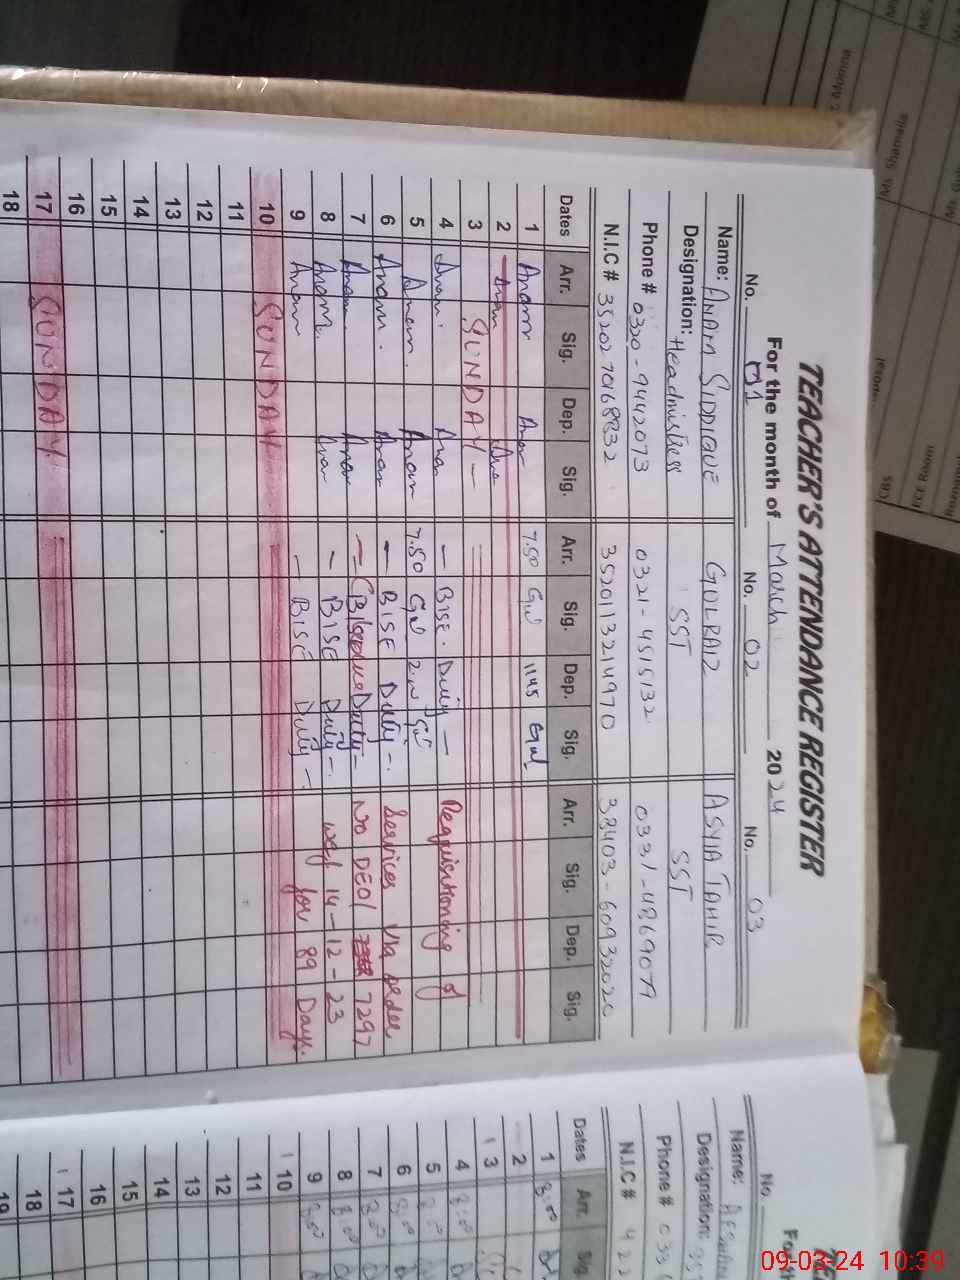 TEACHER'S ATTENDANCE REGISTER
For the month of March 2024
No. 01 No. 02 No. 03
Name: ANAM SIDDIQUE GULRAIZ ASYIA TAHIR
Designation: Headmistress SST SST
Phone # 0320-9442073 0321-4515132 0331-4869079
N.I.C # 3520270168832 3520113214970 38403-60932020
Dates Arr. Sig. Dep. Sig. Arr. Sig. Dep. Sig. Arr. Sig. Dep. Sig.
1 Anam Anam 7.50 Gul 1145 Gul
2 Anam
3 SUNDAY -
4 Anam Anam - BISE Duty - Requisitioning of
5 Anam Anam 7.50 Gul Gul
6 Anam Anam - BISE Duty - Services Via order
7 Anam Anam - Duty - No DEO/ 7297
8 Anam Anam - BISE Duty - wef 14-12-23
9 Anam - BISE Duty - for 89 Days.
10 SUNDAY
11
12
13
14
15
16
17 SUNDAY
18
No.
Name:
Designation:
Phone # 033
N.I.C # 422
Dates Arr. Sig.
1 8:00
2
3
4 8:00
5 8:00
6 8:00
7 8:00
8 8:00
9 8:00
10
11
12
13
14
15
16
17
18
19
ECE Room
CBS
Shamaila
09-03-24 10:39